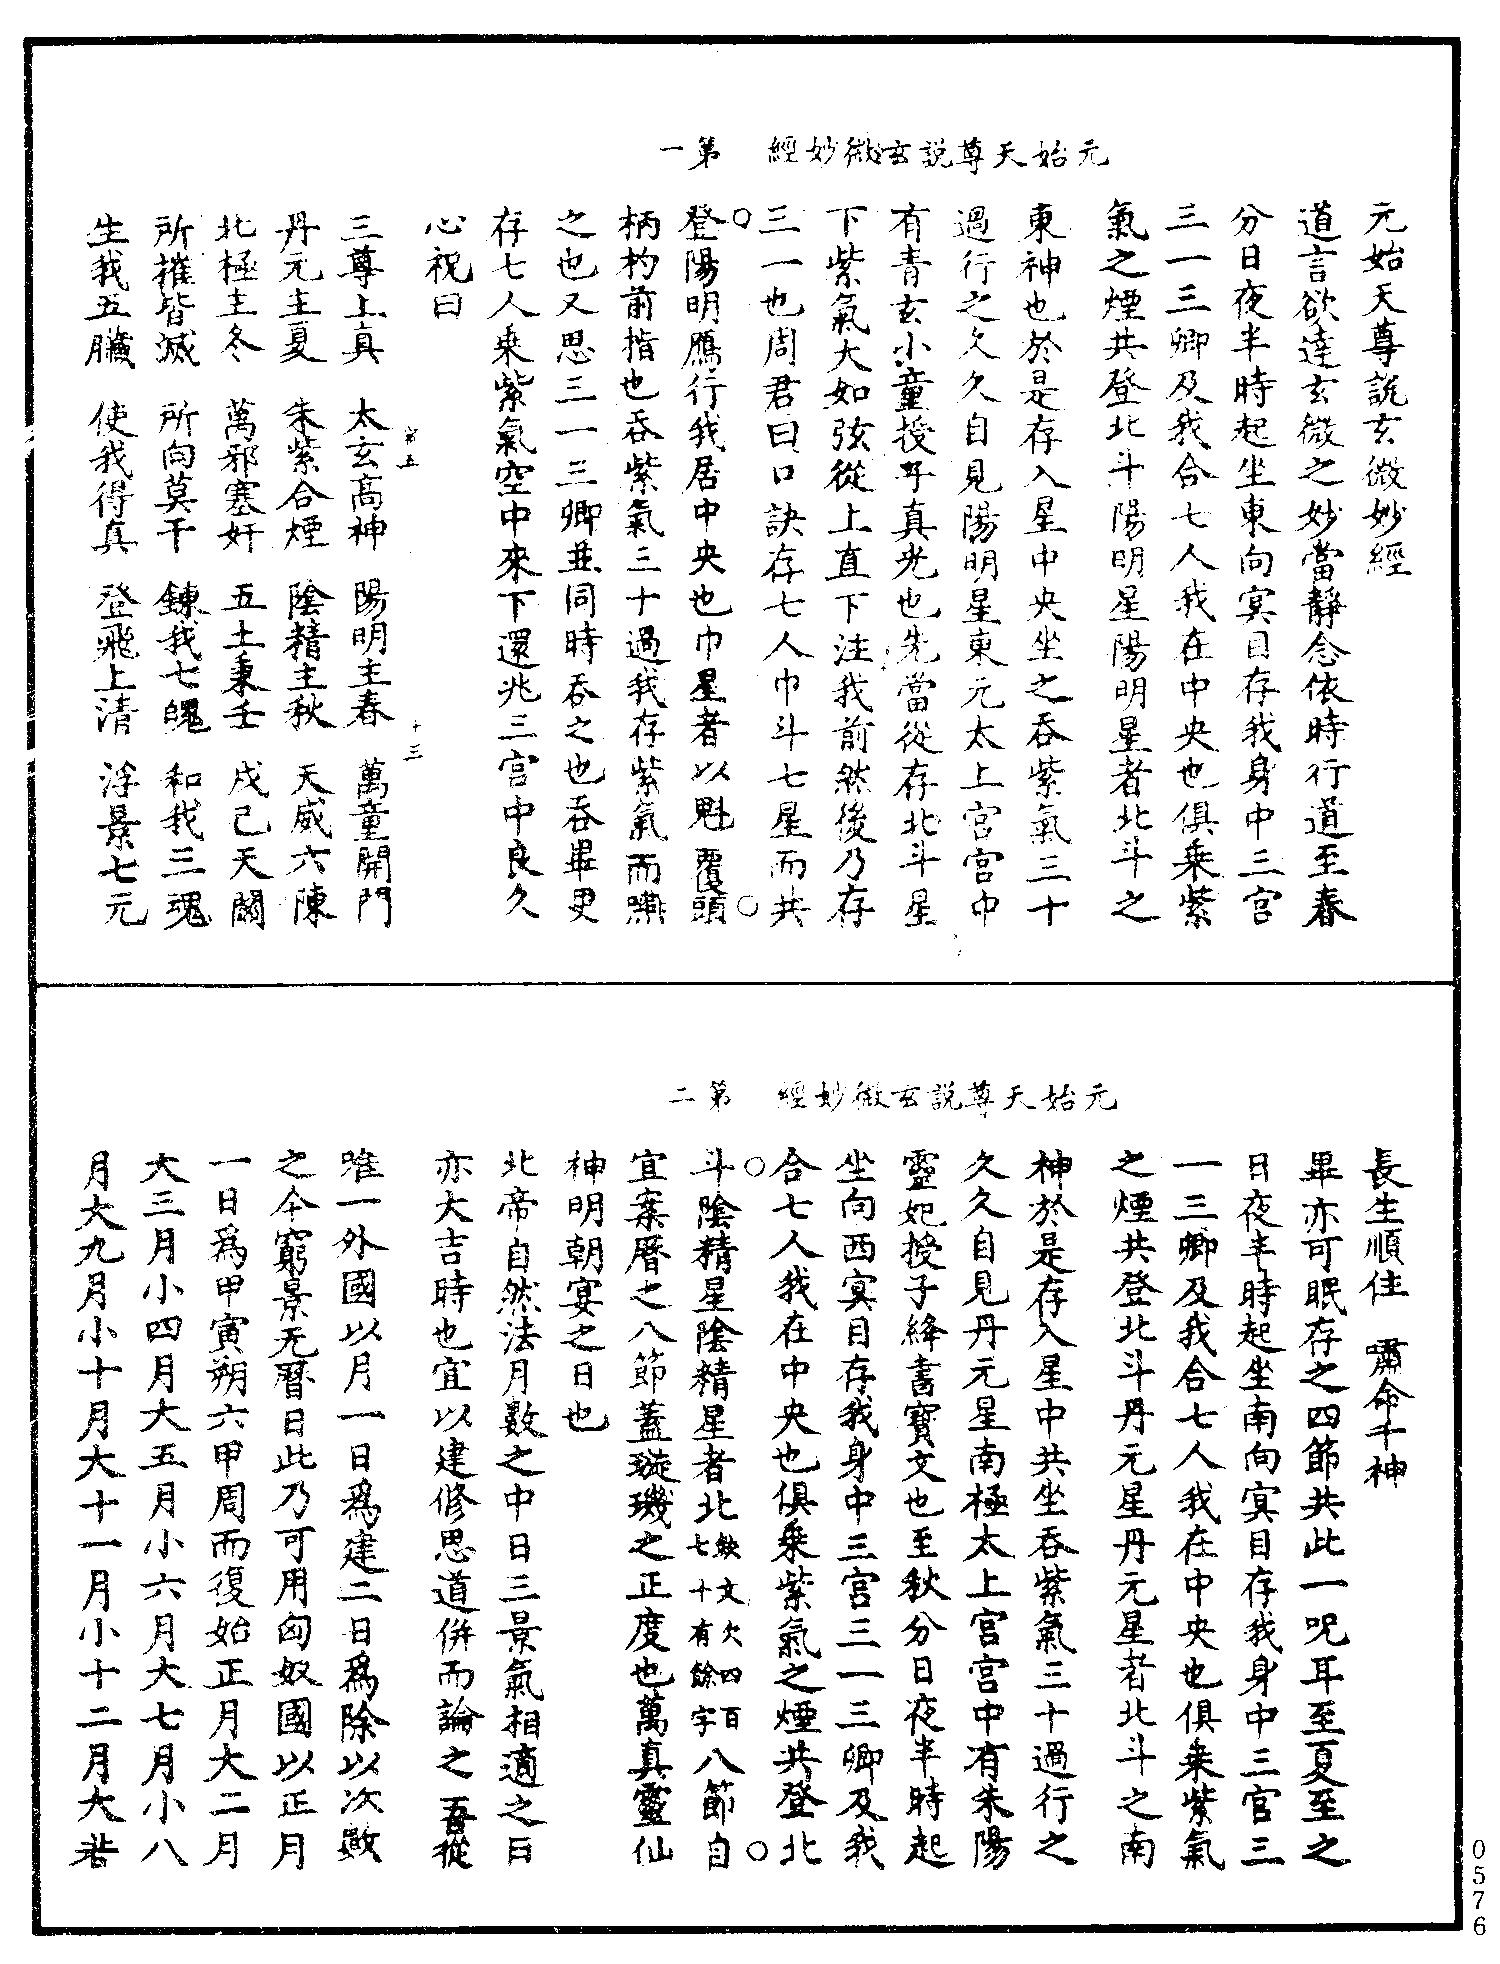 元始天尊說玄微妙經　第一
元始天尊說玄微妙經
道言欲達玄微之妙當靜念依時行道至春
分日夜半時起坐東向冥目存我身中三宮
三一三卿及我合七人我在中央也俱乘紫
氣之煙共登北斗陽明星陽明星者北斗之
東神也於是存入星中央坐之吞紫氣三十
過行之久久自見陽明星東元太上宮宮中
有青玄小童授子真光也先當從存北斗星
下紫氣大如弦從上直下注我前然後乃存
三一也周君曰口訣存七人巾斗七星而共
登陽明鴈行我居中央也巾星者以魁覆頭
柄杓前指也吞紫氣三十過我存紫氣而嚥
之也又思三一三卿並同時吞之也吞畢更
存七人乘紫氣空中來下還兆三宮中良久
心祝曰
三尊上真　太玄高神　陽明主春　萬童開門
丹元主夏　朱紫合煙　陰精主秋　天威六陳
北極主冬　萬邪塞奸　五土秉壬　戌己天關
所摧皆滅　所向莫干　鍊我七魄　和我三魂
生我五臟　使我得真　登飛上清　浮景七元
十三
元始天尊說玄微妙經　第二
長生順住　嘯命千神
畢亦可眠存之四節共此一呪耳至夏至之
日夜半時起坐南向冥目存我身中三宮三
一三卿及我合七人我在中央也俱乘紫氣
之煙共登北斗丹元星丹元星者北斗之南
神於是存入星中共坐吞紫氣三十過行之
久久自見丹元星南極太上宮宮中有朱陽
靈妃授子絳書寶文也至秋分日夜半時起
坐向西冥目存我身中三宮三一三卿及我
合七人我在中央也俱乘紫氣之煙共登北
斗陰精星陰精星者北缺文欠四百七十有餘字八節自
宜案曆之八節蓋璇璣之正度也萬真靈仙
神明朝宴之日也
北帝自然法月數之中日三景氣相適之日
亦大吉時也宜以建修思道併而論之吾從
唯一外國以月一日為建二日為除以次數
之今窮景无曆日此乃可用匈奴國以正月
一日為甲寅朔六甲周而復始正月大二月
大三月小四月大五月小六月大七月小八
月大九月小十月大十一月小十二月大若
0576